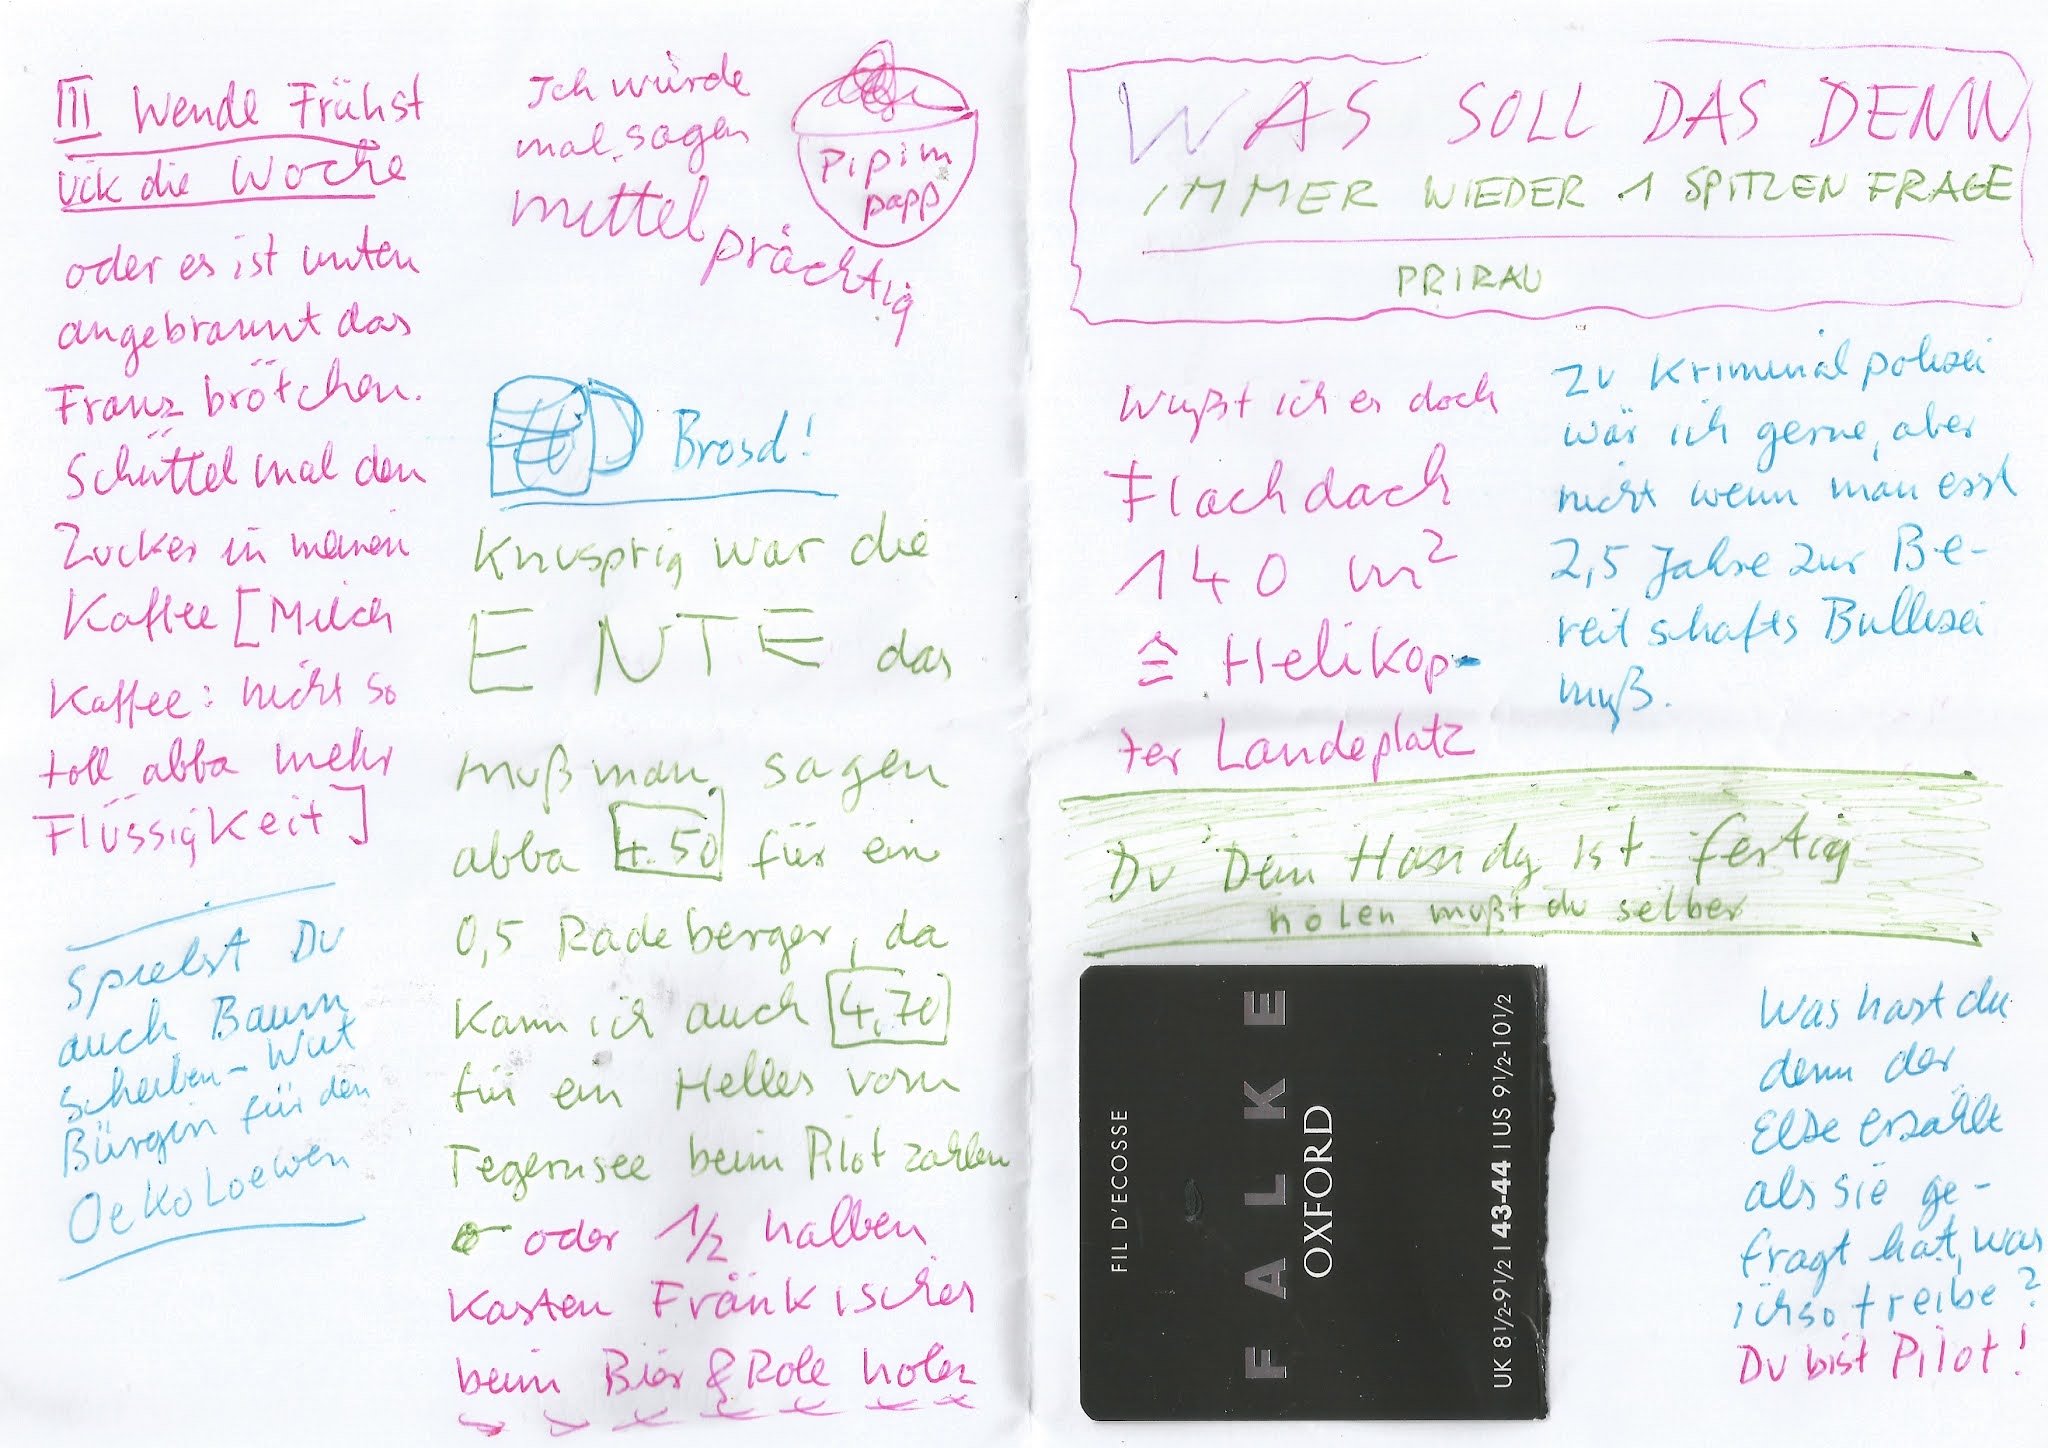 III Wende Frühst
ück die Woche
oder es ist unten
angebrannt das
Franz brötchen.
Schüttel mal den
Zucker in meinen
Kaffee [Milch
Kaffee: nicht so
toll abba mehr
Flüssigkeit]
Spielst Du
auch Baum
Scheiben-Wut
Bürgin für den
OekoLoewen
Ich würde
mal sagen
mittel
prächtig
Pipim
papp
Brosd!
Knusprig war die
ENTE das
muß man sagen
abba 4.50 für ein
0,5 Radeberger, da
kann ich auch 4,70
für ein Helles vom
Tegernsee beim Pilot zahlen
oder 1/2 halben
Kasten Fränkisches
beim Bier & Role holen
WAS SOLL DAS DENN
IMMER WIEDER 1 SPITZEN FRAGE
PRIRAU
Wußt ich es doch
Flachdach
140 m²
≙ Helikop-
ter Landeplatz
Zu Kriminalpolizei
wär ich gerne, aber
nicht wenn man erst
2,5 Jahre zur Be-
reitschafts Bullizei
muß.
Du Dein Handy ist fertig
holen mußt du selber
FIL D'ECOSSE
FALKE
OXFORD
UK 8 1/2-9 1/2 | 43-44 | US 9 1/2-10 1/2
Was hast du
denn der
Else erzählt
als sie ge-
fragt hat, was
ich so treibe?
Du bist Pilot!